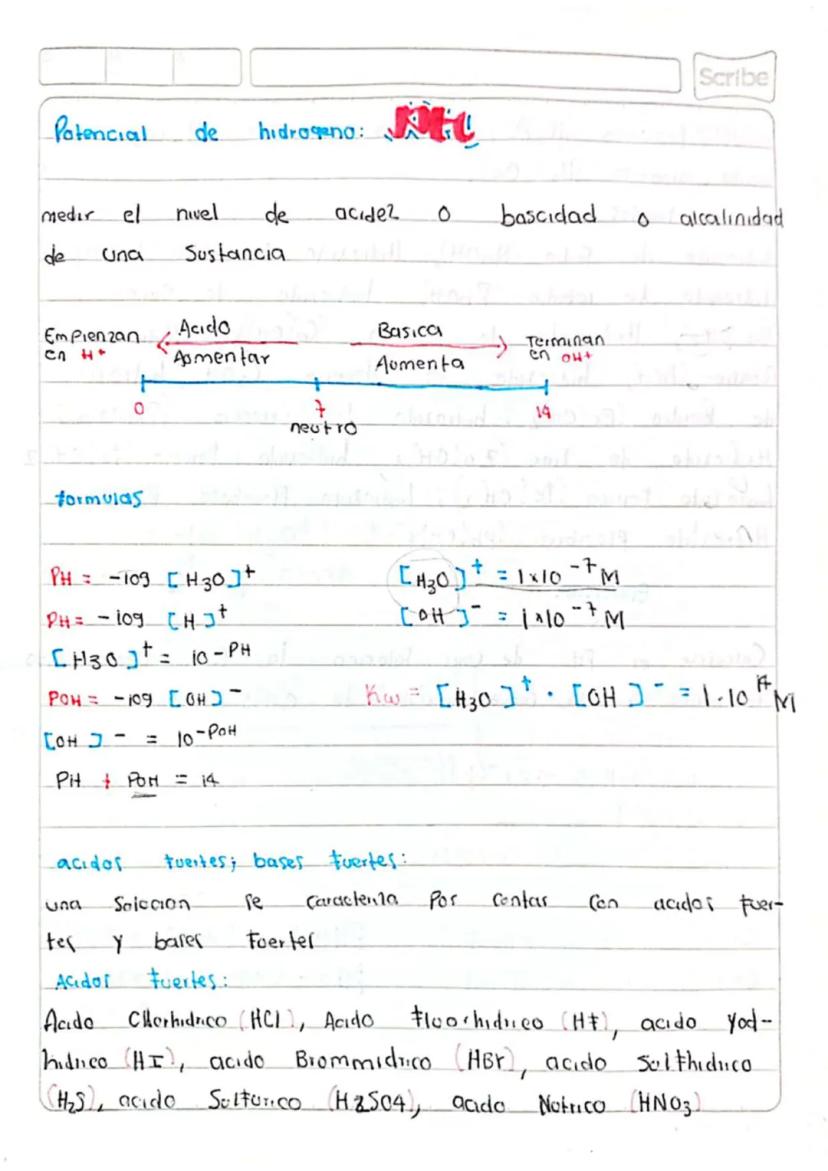 Scribe
Potencial de hidrogeno: PH
medir el nivel de acidez o bascidad o alcalinidad
de una Sustancia
Empienzan en H+ Acido Aomentar Basica Aumenta Terminan en OH+
0 7 14
neutro
formulas
PH = -log [H3O]+ [H3O]+ = 1x10 -7 M
PH = -log [H]+ [OH]- = 1x10 -7 M
[H3O]+ = 10-PH
POH = -log [OH]- Kw = [H3O]+ · [OH]- = 1·10 14 M
[OH]- = 10-POH
PH + POH = 14
acidos fuertes; bases fuertes:
una Solocion se caracteriza por contar con acidos fuer-
tes y bases fuertes
Acidos fuertes:
Acido Clorhidrico (HCl), Acido fluorhidrico (Hf), acido Yod-
hidrico (HI), acido Brommidrico (HBr), acido Sulfhidrico
(H2S), acido Sulfurico (H2SO4), acido Notrico (HNO3)